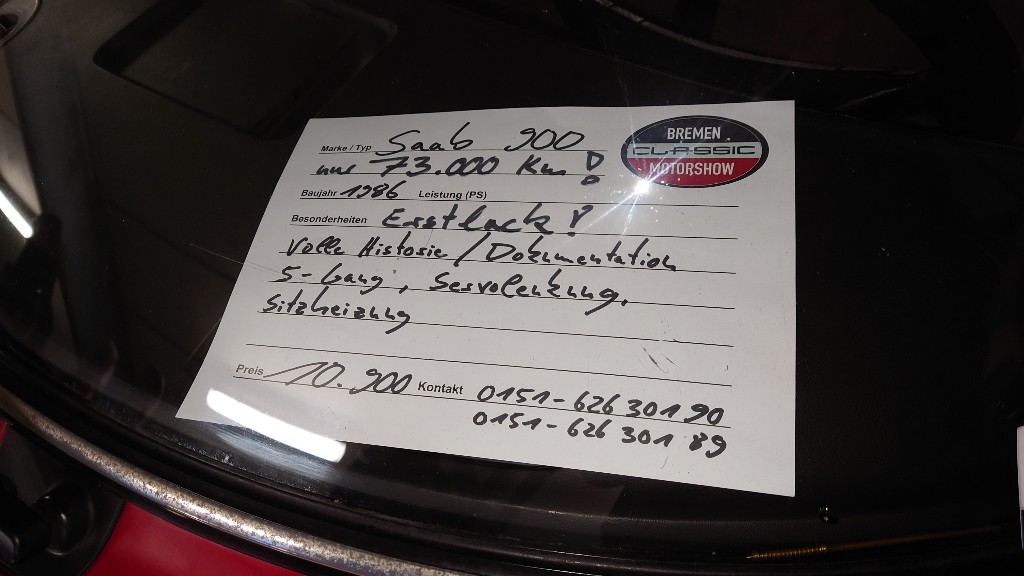 BREMEN
CLASSIC
MOTORSHOW
Marke / Typ Saab 900
nur 73.000 Km!
Baujahr 1986 Leistung (PS)
Besonderheiten Erstlack!
Volle Historie / Dokumentation
5-Gang, Servolenkung,
Sitzheizung
Preis 10.900 Kontakt 0151-626 301 90
0151-626 301 89